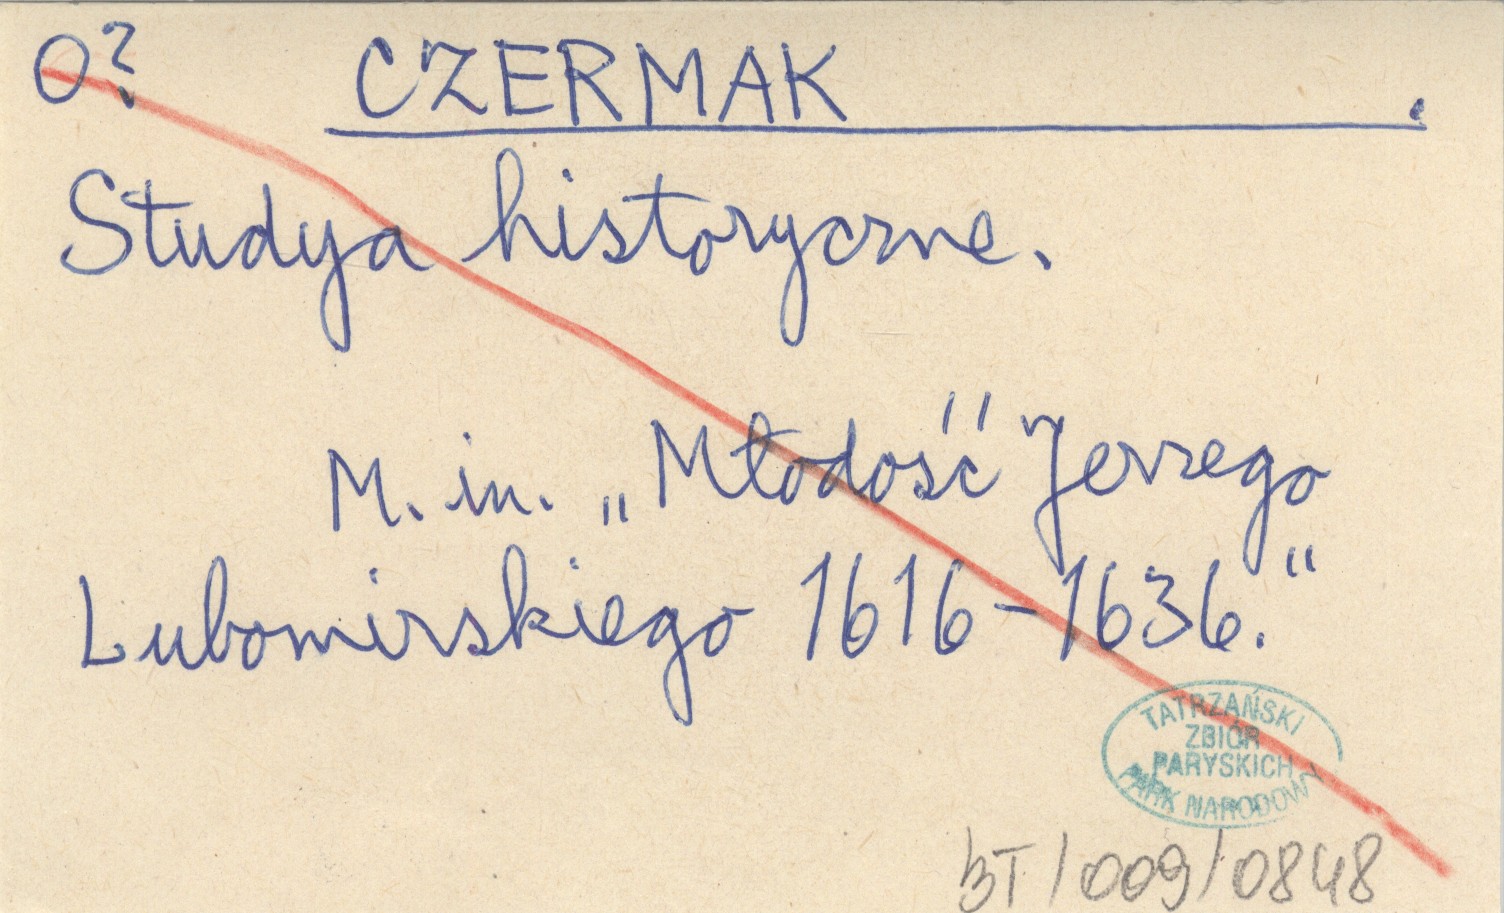 O? CZERMAK .
Studya historyczne.
M. in. „Młodość Jerzego
Lubomirskiego 1616-1636."
TATRZAŃSKI
ZBIÓR
PARYSKICH
PARK NARODOWY
BT/009/0848